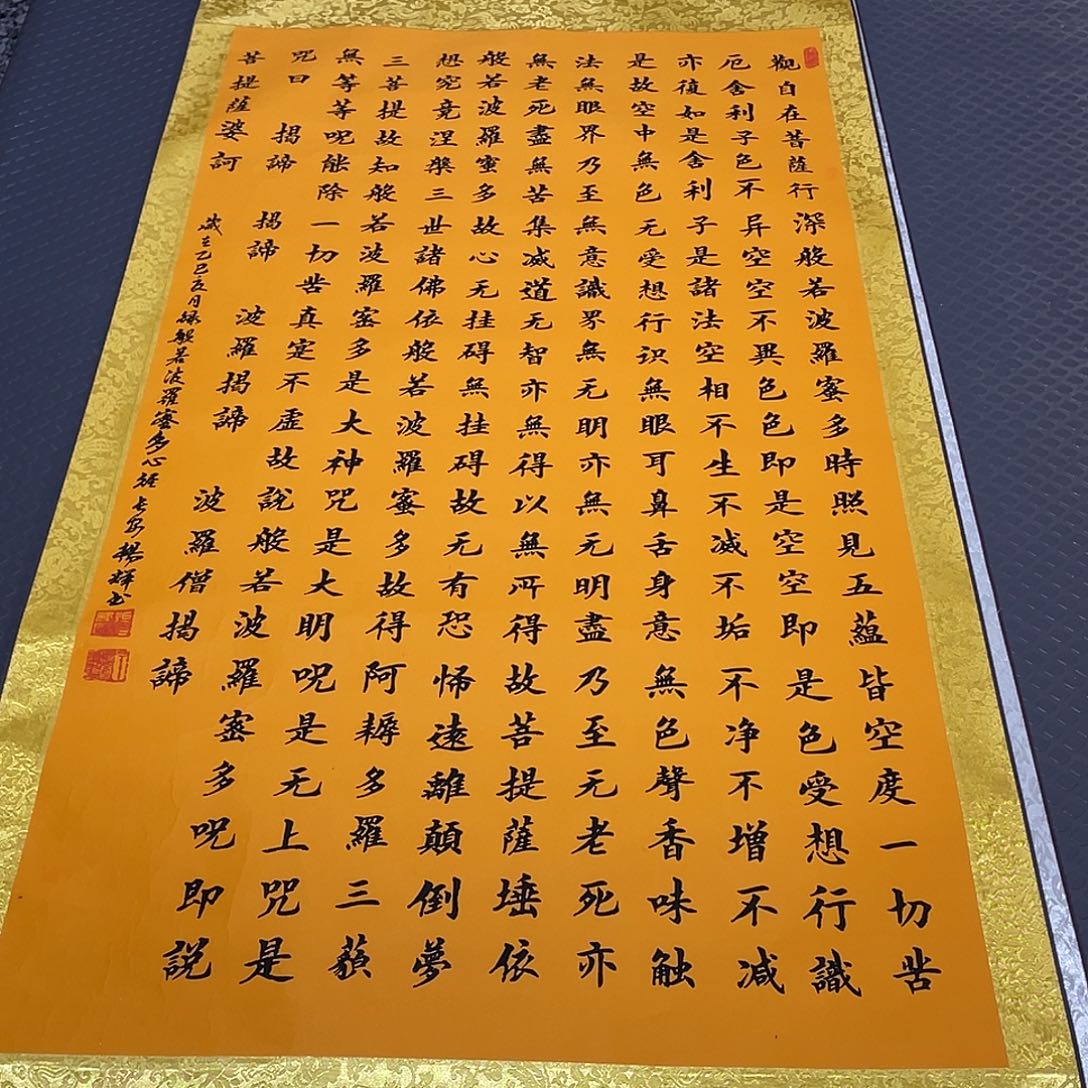 觀自在菩薩行深般若波羅蜜多時照見五蘊皆空度一切苦
厄舍利子色不异空空不異色色即是空空即是色受想行識
亦復如是舍利子是諸法空相不生不滅不垢不净不增不减
是故空中無色无受想行识無眼耳鼻舌身意無色聲香味触
法無眼界乃至無意識界無无明亦無无明盡乃至无老死亦
無老死盡無苦集滅道无智亦無得以無所得故菩提薩埵依
般若波羅蜜多故心无挂碍無挂碍故无有恐怖遠離顛倒夢
想究竟涅槃三世諸佛依般若波羅蜜多故得阿耨多羅三藐
三菩提故知般若波羅蜜多是大神咒是大明呪是无上咒是
無等等呪能除一切苦真寔不虚故説般若波羅蜜多呪即説
呪曰 揭諦 揭諦 波羅揭諦 波羅僧揭諦
菩提薩婆訶
歲在乙巳五月録般若波羅蜜多心経长安楊輝书